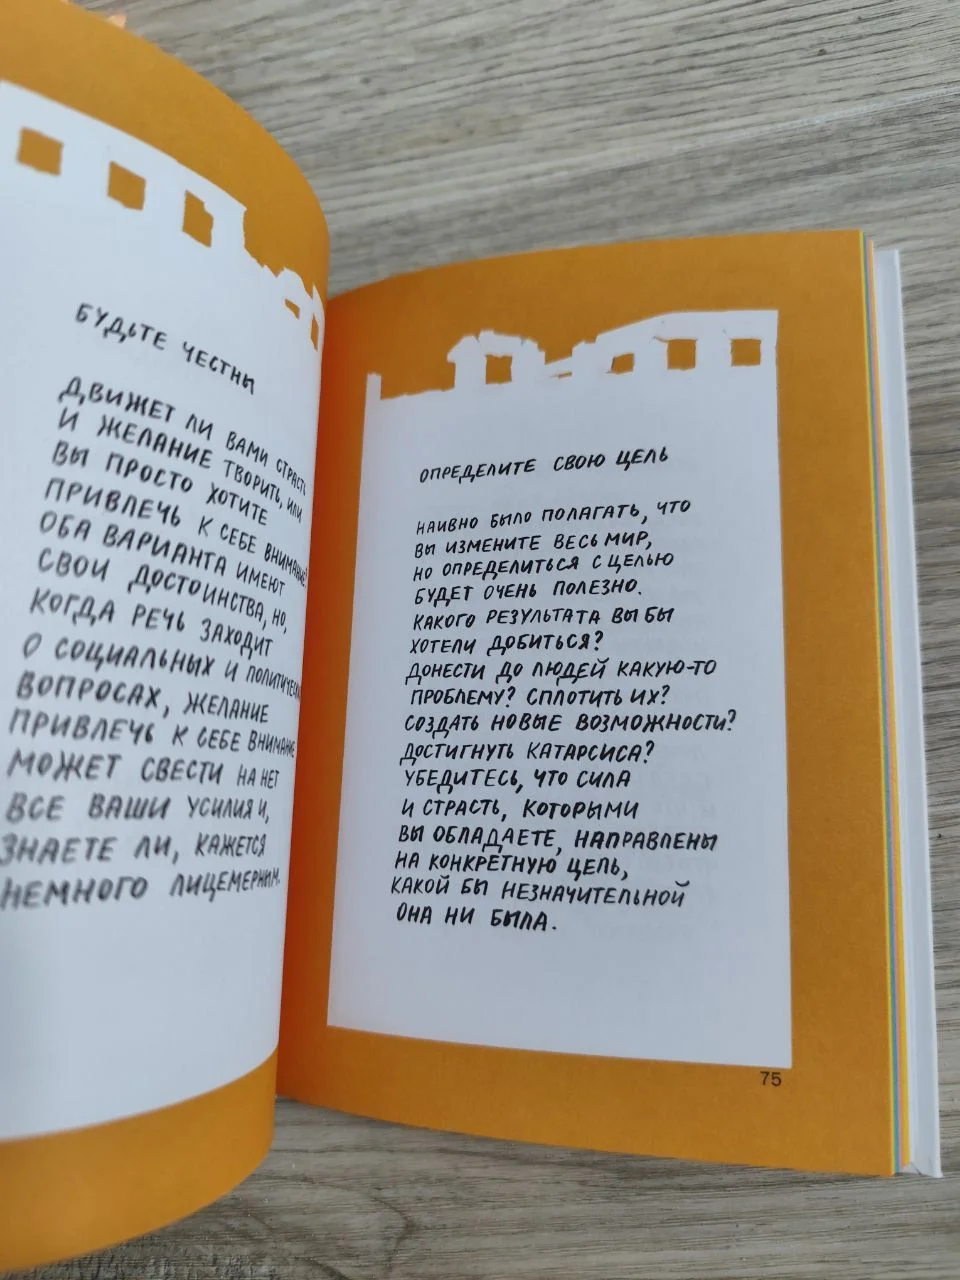 БУДЬТЕ ЧЕСТНЫ
ДВИЖЕТ ЛИ ВАМИ СТРАСТЬ
И ЖЕЛАНИЕ ТВОРИТЬ, ИЛИ
ВЫ ПРОСТО ХОТИТЕ
ПРИВЛЕЧЬ К СЕБЕ ВНИМАНИЕ?
ОБА ВАРИАНТА ИМЕЮТ
СВОИ ДОСТОИНСТВА, НО,
КОГДА РЕЧЬ ЗАХОДИТ
О СОЦИАЛЬНЫХ И ПОЛИТИЧЕСКИХ
ВОПРОСАХ, ЖЕЛАНИЕ
ПРИВЛЕЧЬ К СЕБЕ ВНИМАНИЕ
МОЖЕТ СВЕСТИ НА НЕТ
ВСЕ ВАШИ УСИЛИЯ И,
ЗНАЕТЕ ЛИ, КАЖЕТСЯ
НЕМНОГО ЛИЦЕМЕРНИМ.
ОПРЕДЕЛИТЕ СВОЮ ЦЕЛЬ
НАИВНО БЫЛО ПОЛАГАТЬ, ЧТО
ВЫ ИЗМЕНИТЕ ВЕСЬ МИР,
НО ОПРЕДЕЛИТЬСЯ С ЦЕЛЬЮ
БУДЕТ ОЧЕНЬ ПОЛЕЗНО.
КАКОГО РЕЗУЛЬТАТА ВЫ БЫ
ХОТЕЛИ ДОБИТЬСЯ?
ДОНЕСТИ ДО ЛЮДЕЙ КАКУЮ-ТО
ПРОБЛЕМУ? СПЛОТИТЬ ИХ?
СОЗДАТЬ НОВЫЕ ВОЗМОЖНОСТИ?
ДОСТИГНУТЬ КАТАРСИСА?
УБЕДИТЕСЬ, ЧТО СИЛА
И СТРАСТЬ, КОТОРЫМИ
ВЫ ОБЛАДАЕТЕ, НАПРАВЛЕНЫ
НА КОНКРЕТНУЮ ЦЕЛЬ,
КАКОЙ БЫ НЕЗНАЧИТЕЛЬНОЙ
ОНА НИ БЫЛА.
75